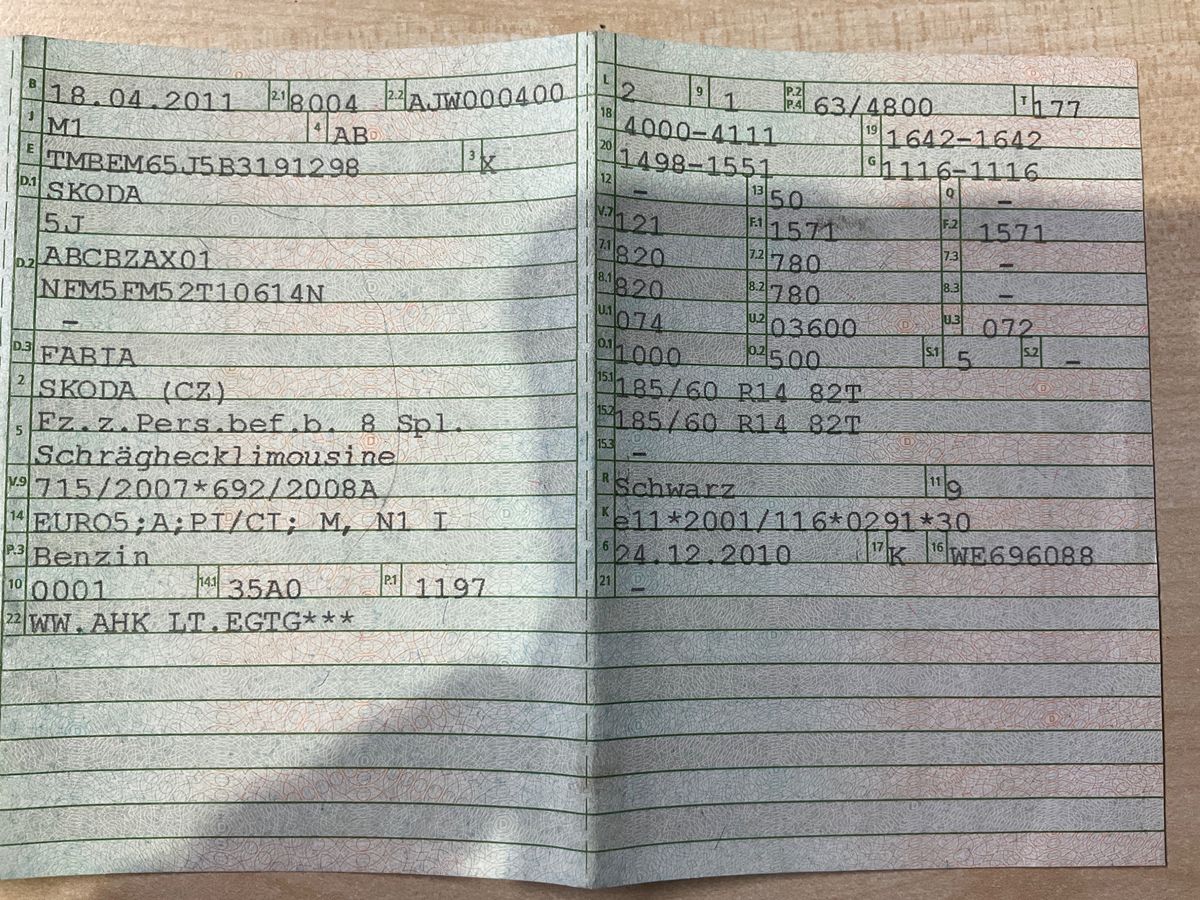 B 18.04.2011 2.1 8004 2.2 AJW000400
J M1 4 AB
E TMBEM65J5B3191298 3 X
D.1 SKODA
5J
D.2 ABCBZAX01
NFM5FM52T10614N
–
D.3 FABIA
2 SKODA (CZ)
5 Fz.z.Pers.bef.b. 8 Spl.
Schräghecklimousine
V.9 715/2007*692/2008A
14 EURO5;A;PI/CI; M, N1 I
P.3 Benzin
10 0001 14.1 35A0 P.1 1197
22 WW.AHK LT.EGTG***
L 2 9 1 P.2 P.4 63/4800 T 177
18 4000-4111 19 1642-1642
20 1498-1551 G 1116-1116
12 – 13 50 Q –
V.7 121 F.1 1571 F.2 1571
7.1 820 7.2 780 7.3 –
8.1 820 8.2 780 8.3 –
U.1 074 U.2 03600 U.3 072
O.1 1000 O.2 500 S.1 5 S.2 –
15.1 185/60 R14 82T
15.2 185/60 R14 82T
15.3 –
R Schwarz 11 9
K e11*2001/116*0291*30
6 24.12.2010 17 K 16 WE696088
21 –